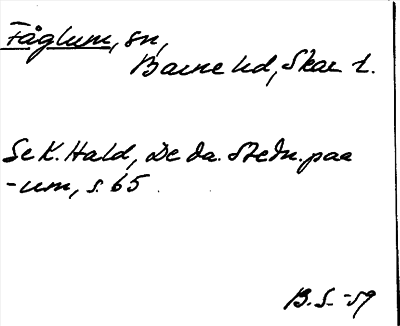 Fåglum, sn,
Barne hd, Skar. l.
Se K. Hald, De da. Stedn. paa
-um, s. 65.
B. S. -59